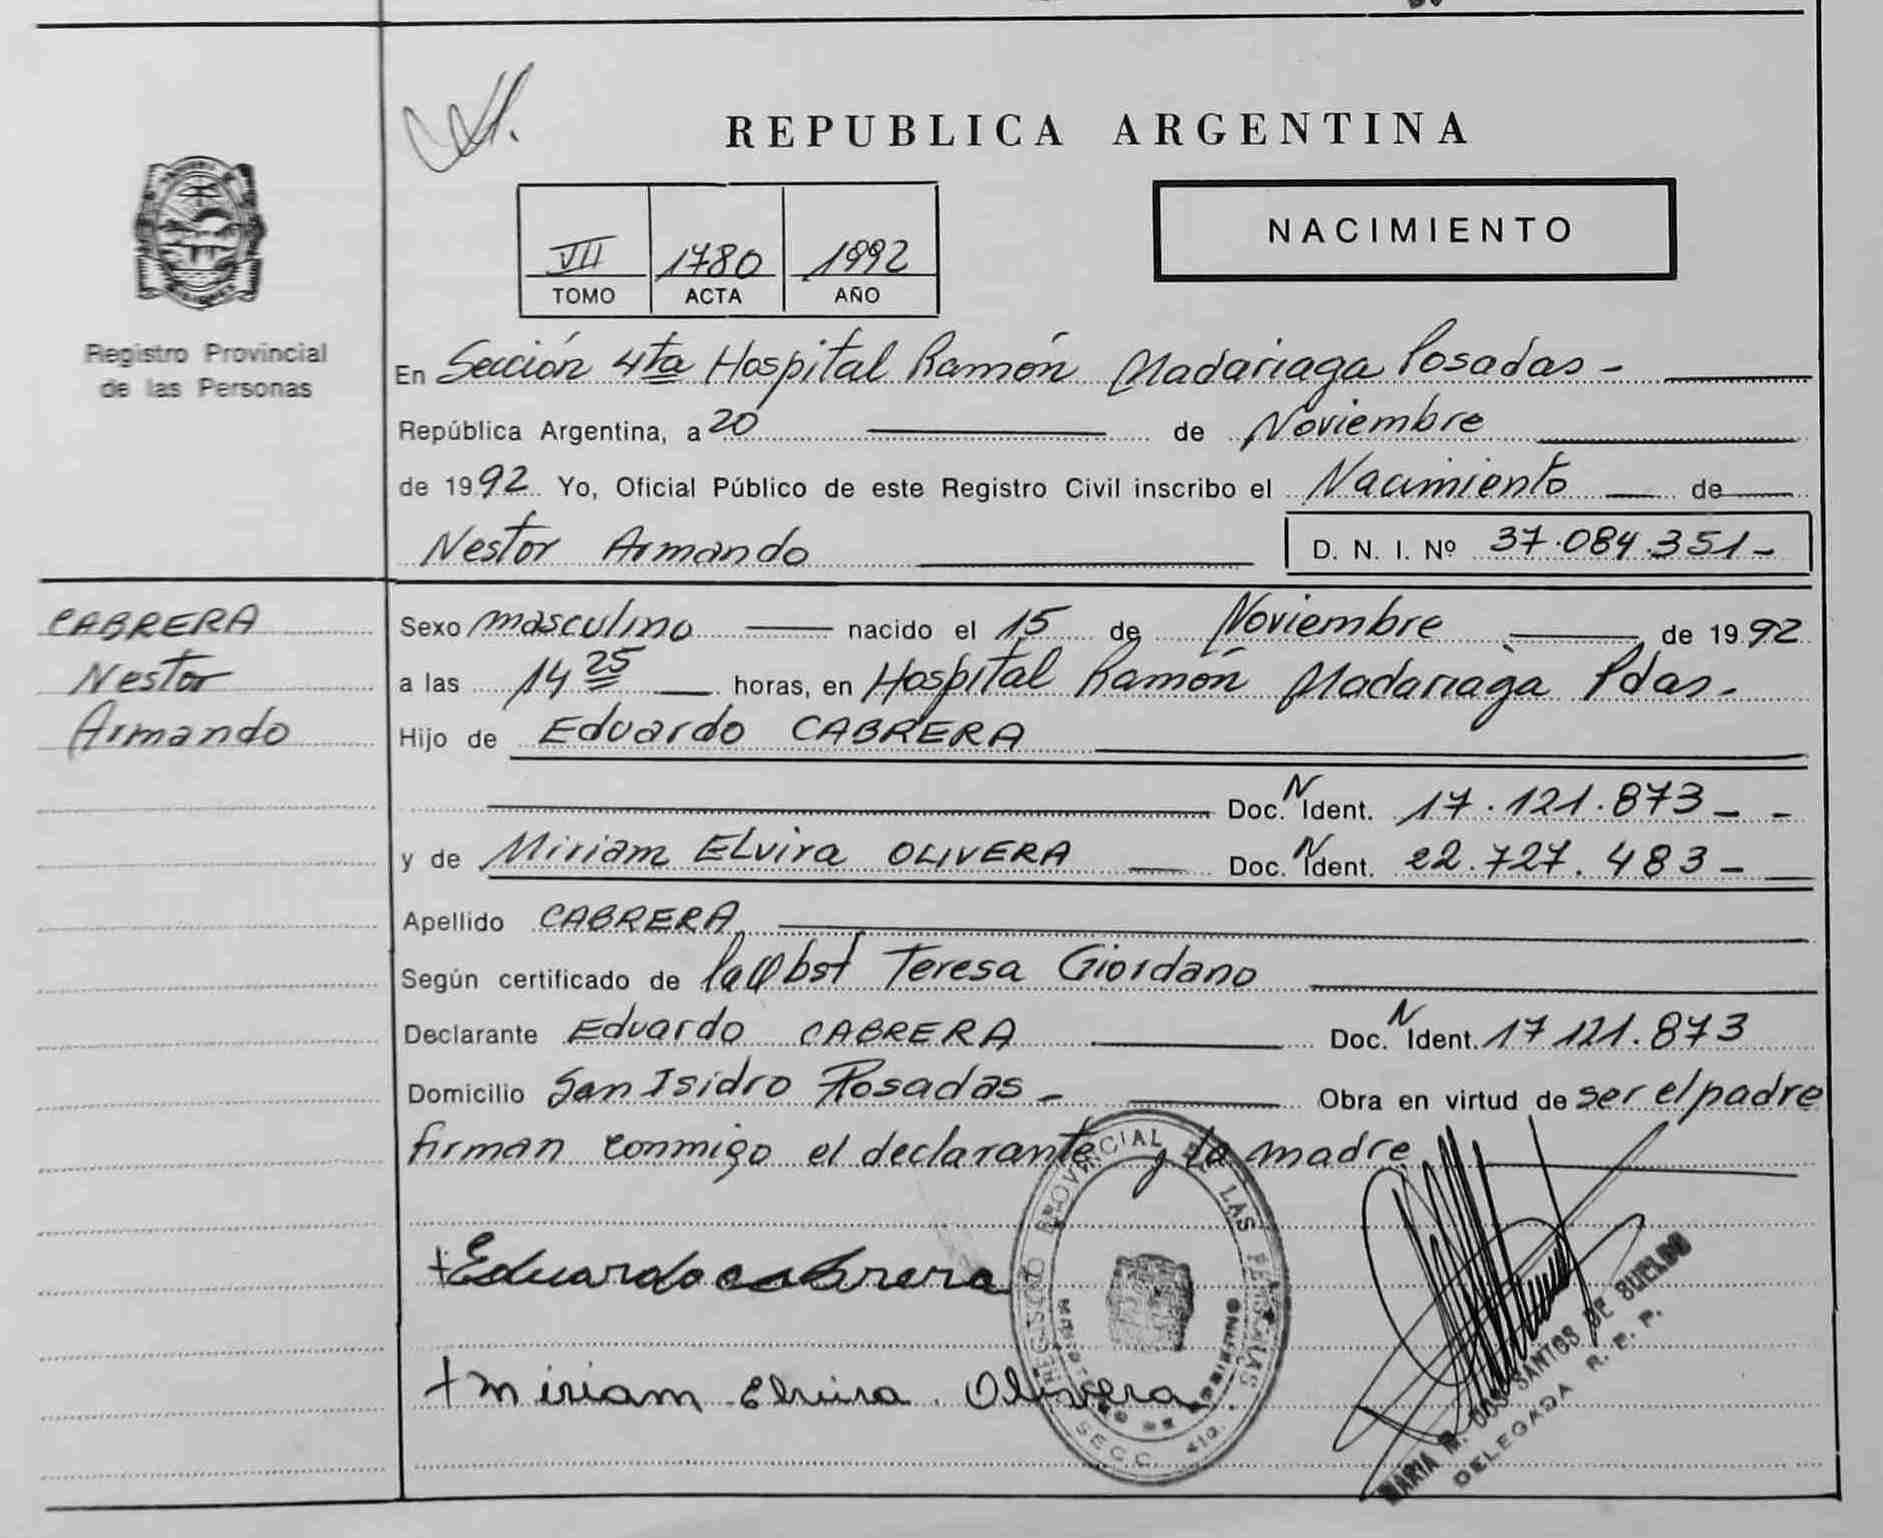 REPUBLICA ARGENTINA
VII 1780 1992
TOMO ACTA AÑO
NACIMIENTO
Registro Provincial
de las Personas
En Sección 4ta Hospital Ramón Madariaga Posadas -
República Argentina, a 20 de Noviembre
de 1992 Yo, Oficial Público de este Registro Civil inscribo el Nacimiento de
Nestor Armando D. N. I. Nº 37.084.351-
CABRERA
Nestor
Armando
Sexo masculino nacido el 15 de Noviembre de 1992
a las 14 25 horas, en Hospital Ramón Madariaga Pdas.
Hijo de Eduardo CABRERA
Doc. N Ident. 17.121.873 - -
y de Miriam Elvira OLIVERA Doc. N Ident. 22.727.483 -
Apellido CABRERA
Según certificado de la Obst Teresa Giordano
Declarante Eduardo CABRERA Doc. N Ident. 17 121.873
Domicilio San Isidro Posadas - Obra en virtud de ser el padre
firman conmigo el declarante y la madre
+Eduardo cabrera
+Miriam Elvira Olivera
REGISTRO PROVINCIAL DE LAS PERSONAS
SECC. 4ta.
MARIA M. DOS SANTOS DE SUELDO
DELEGADA R. P. P.